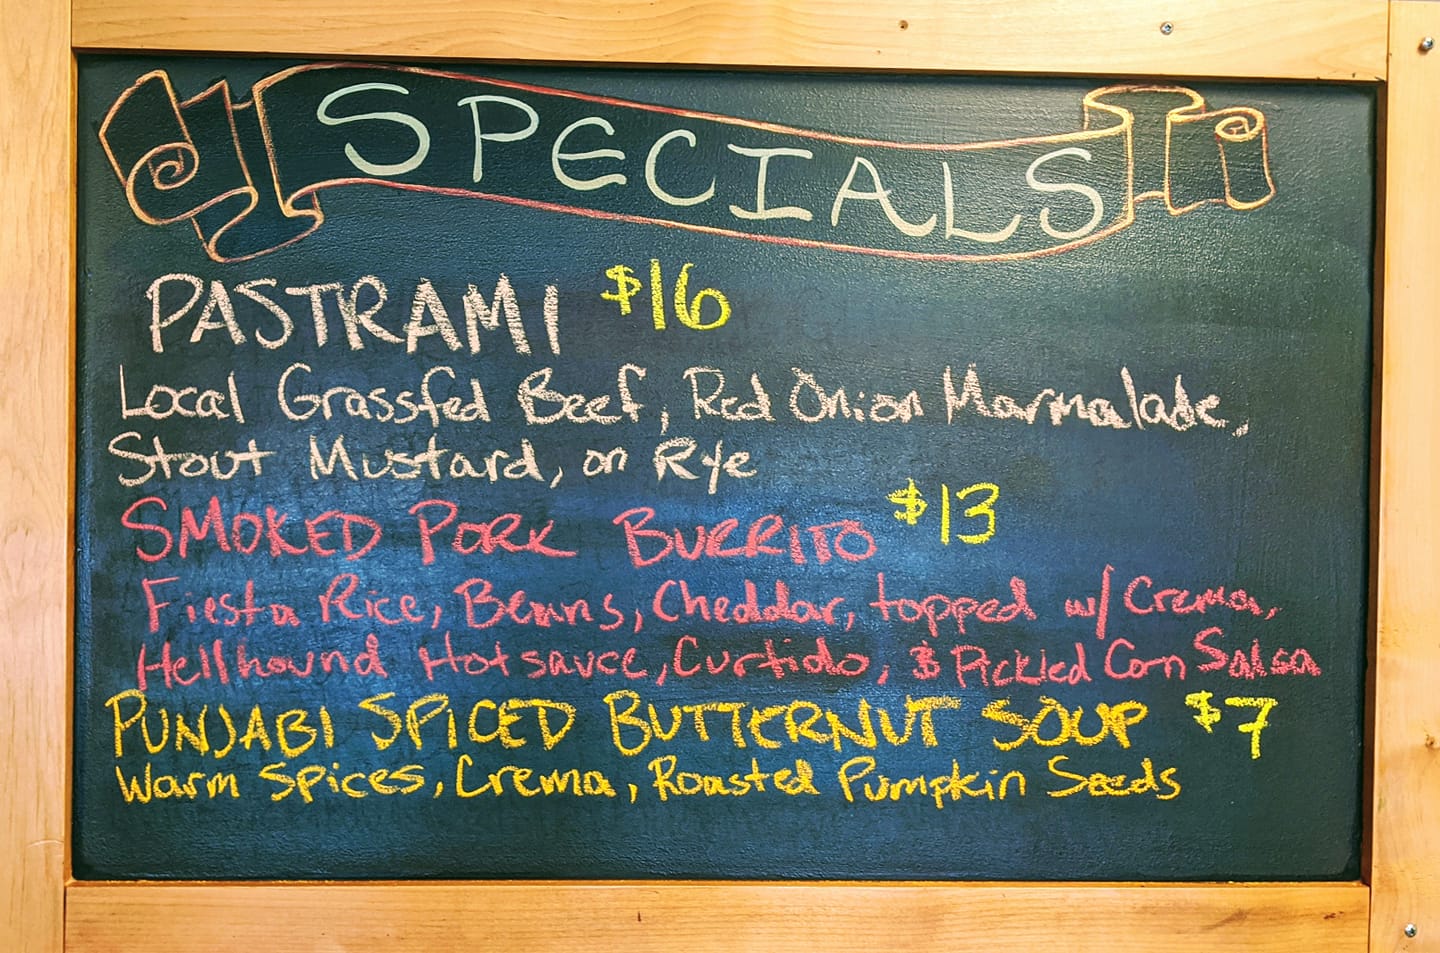 SPECIALS
PASTRAMI $16
Local Grassfed Beef, Red Onion Marmalade,
Stout Mustard, on Rye
SMOKED PORK BURRITO $13
Fiesta Rice, Beans, Cheddar, topped w/ Crema,
Hellhound Hotsauce, Curtido, & Pickled Corn Salsa
PUNJABI SPICED BUTTERNUT SOUP $7
Warm Spices, Crema, Roasted Pumpkin Seeds